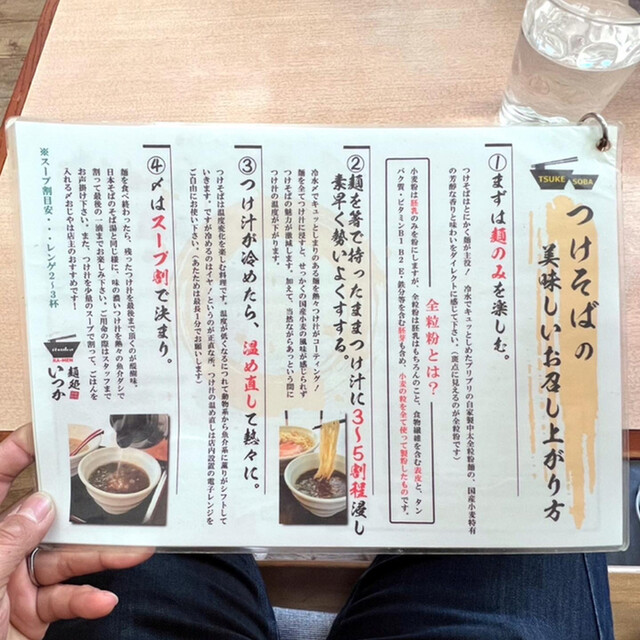 TSUKE SOBA
つけそばの
美味しいお召し上がり方
①まずは麺のみを楽しむ。
つけそばはとにかく麺が主役！ 冷水でキュッとしめたプリプリの自家製中太全粒粉麺の、国産小麦特有
の芳醇な香りと味わいをダイレクトに感じて下さい。（斑点に見えるのが全粒粉です）
全粒粉とは？
小麦粉は胚乳のみを粉にしますが、全粒粉は胚乳はもちろんのこと、食物繊維を含む表皮と、タン
パク質・ビタミンB1 B2 E・鉄分等を含む胚芽も含め、小麦の粒を全て使って製粉したものです。
②麺を箸で持ったままつけ汁に3～5割程浸し
素早く勢いよくすする。
冷水〆でキュッとしまりのある麺を熱々つけ汁がコーティング！
麺を全てつけ汁に浸すと、せっかくの国産小麦の風味が感じられず
つけそばの魅力が激減します。加えて、当然ながらあっという間に
つけ汁の温度が下がります。
③つけ汁が冷めたら、温め直して熱々に。
つけそばは温度変化を楽しむ料理です。温度が低くなるにつれて動物系から魚介系に薫りがシフトして
いきます。ですが冷めるのはイヤ…というのが正直な所。つけ汁の温め直しは店内設置の電子レンジを
ご自由にお使い下さい。（あたためは最長1分でお願いします）
④〆はスープ割で決まり。
麺を食べ終わったら、残ったつけ汁を最後まで頂くのが醍醐味。
日本そばのそば湯と同じ様に、味の濃いつけ汁を熱々の魚介ダシで
割って最後の一滴までお楽しみ下さい。ご用命の際はスタッフまで
お声掛け下さい。また、つけ汁を少量のスープで割って、ごはんを
入れるプチおじやは店主のおすすめです！
※スープ割目安・・・レンゲ2～3杯
itsuka
RA-MEN
麺処
いつか